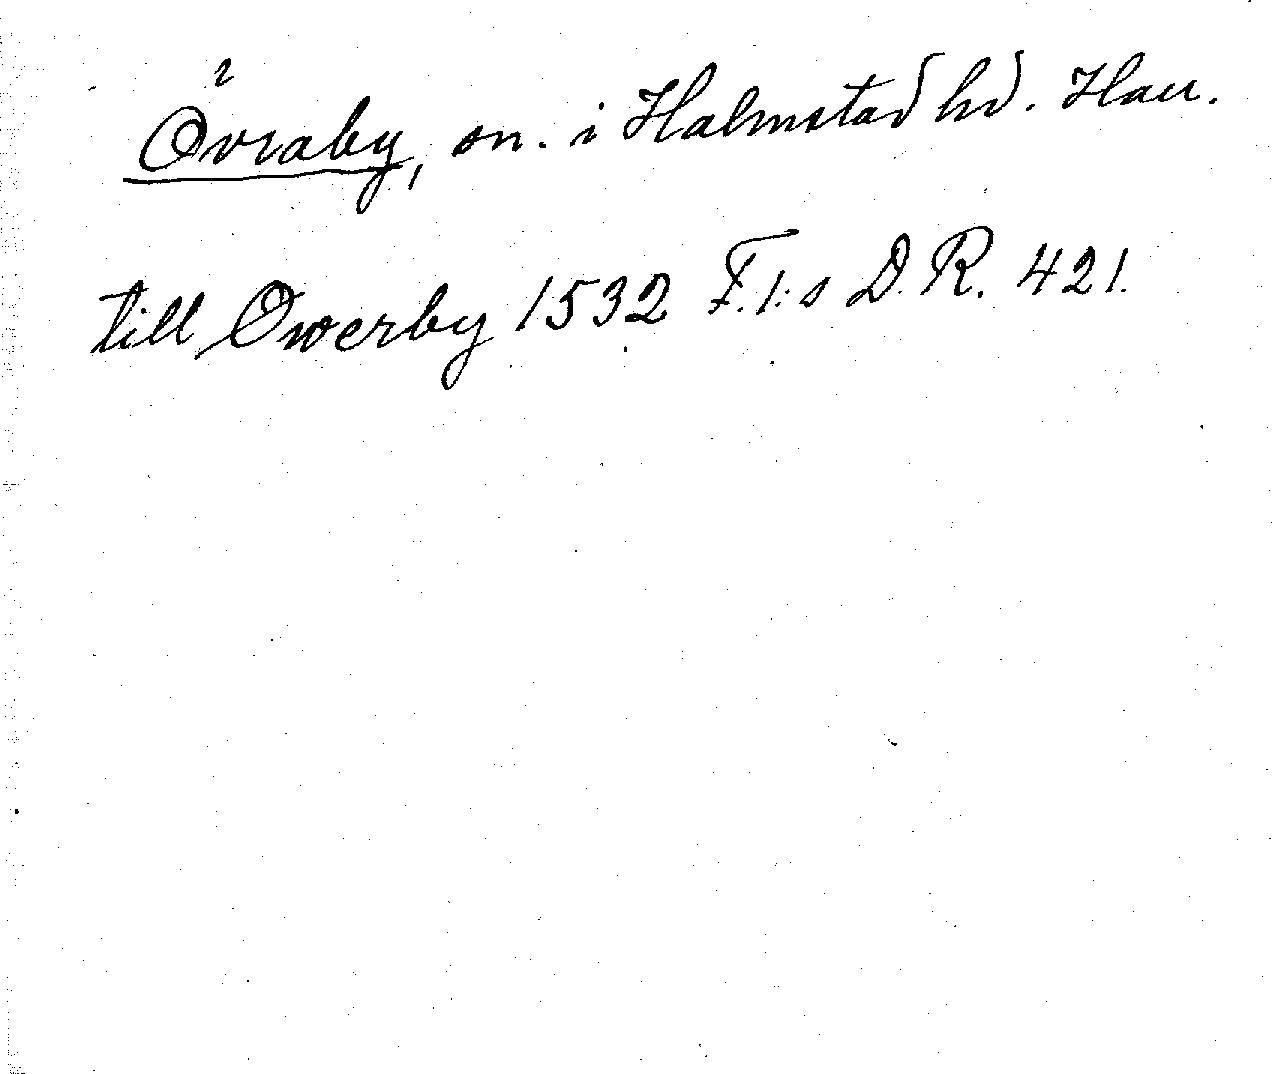 Övraby, sn. i Halmstad hd. Hall.
till Owerby 1532 F.I:s D.R. 421.